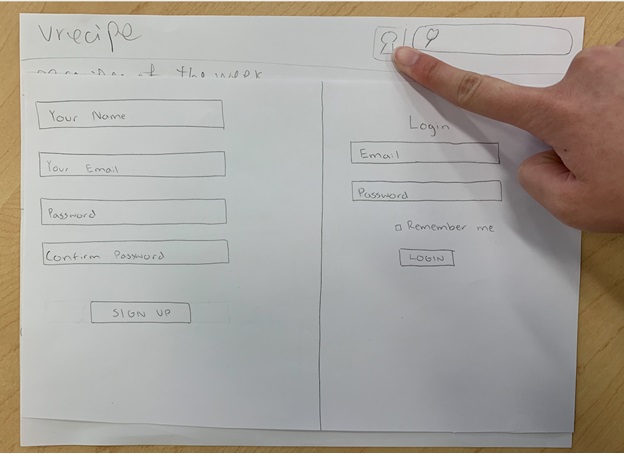 vrecipe
of the week
Your Name
Your Email
Password
Confirm Password
SIGN UP
Login
Email
Password
Remember me
LOGIN